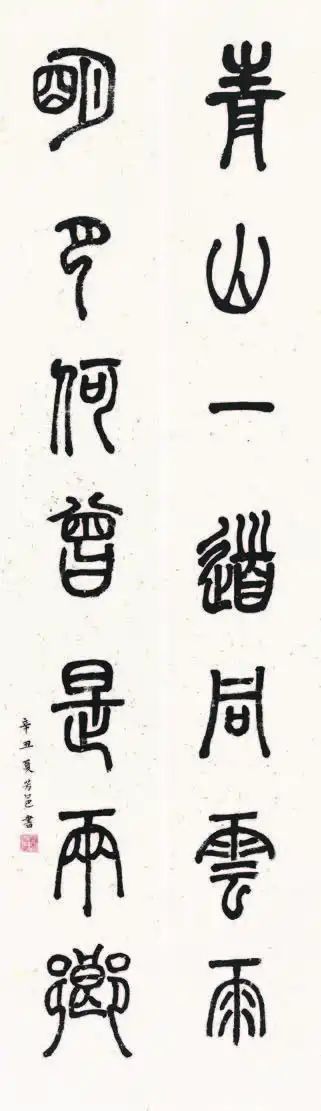 青山一道同雲雨
明月何曾是兩鄉
辛丑夏邑書